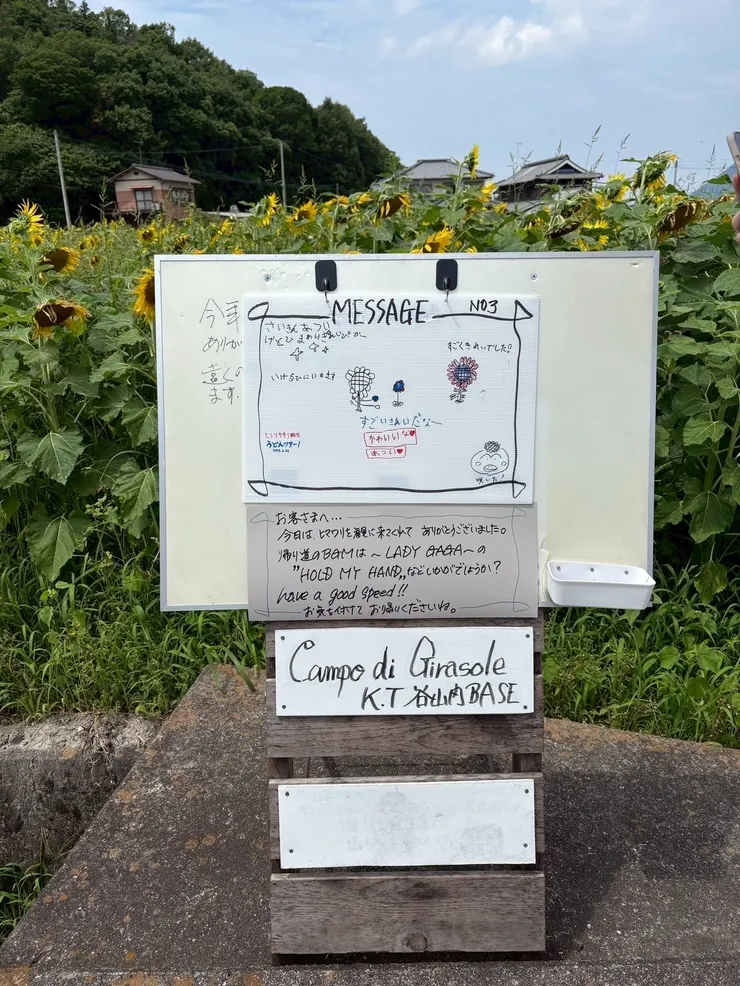 MESSAGE NO3
さいきんあつい
けどひまわりきれいピカピカ
すごくきれいでした!
すごいきれいだな〜
かわいいな♥
あつい♥
咲いた!
今年
ありが
遠くの
ます。
お客さまへ…
今日は、ヒマワリを観に来てくれて ありがとうございました。
帰り道のBGMは〜LADY GAGA〜の
"HOLD MY HAND„などいかがでしょうか?
have a good speed!!
お気を付けて お帰りくださいね。
Campo di Girasole
K.T 谷山内 BASE